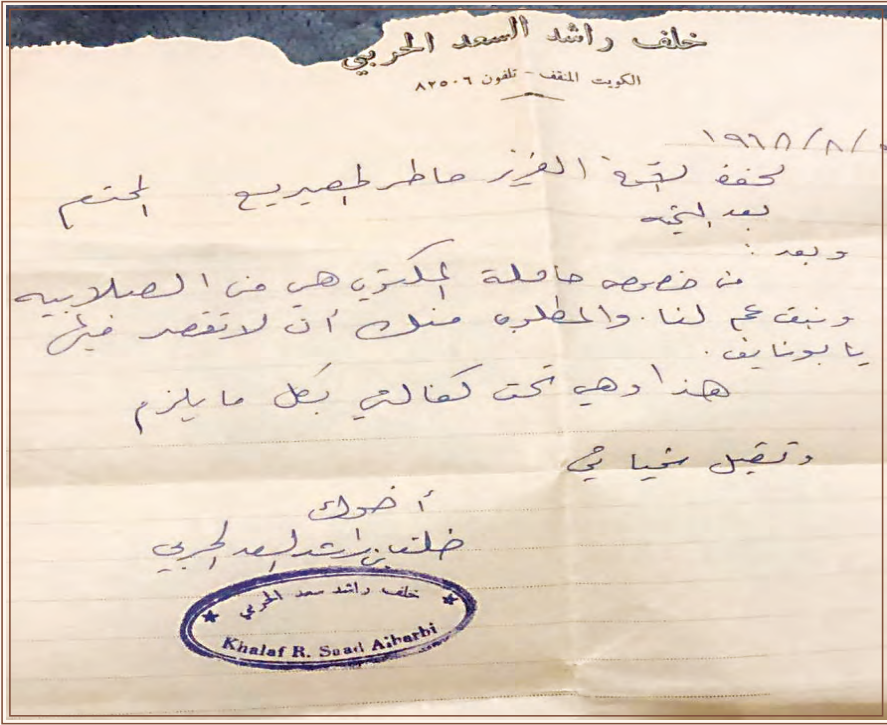 خلف راشد السعد الحربي
الكويت المنقف - تلفون ٨٢٥٠٦
/٨/١٩٦٨
لحضرة الأخ العزيز ماطر المحترم
بعد التحية
وبعد :
من خصوص حاملة المكتوب هي من الصلابيه
وبنت عم لنا . والمطلوب منك أن لا تقصر فيها
يا بونايف .
هذا وهي تحت كفالتي بكل ما يلزم
وتقبل تحياتي
أخوك
خلف بن راشد السعد الحربي
خلف راشد سعد الحربي
Khalaf R. Saad Alharbi